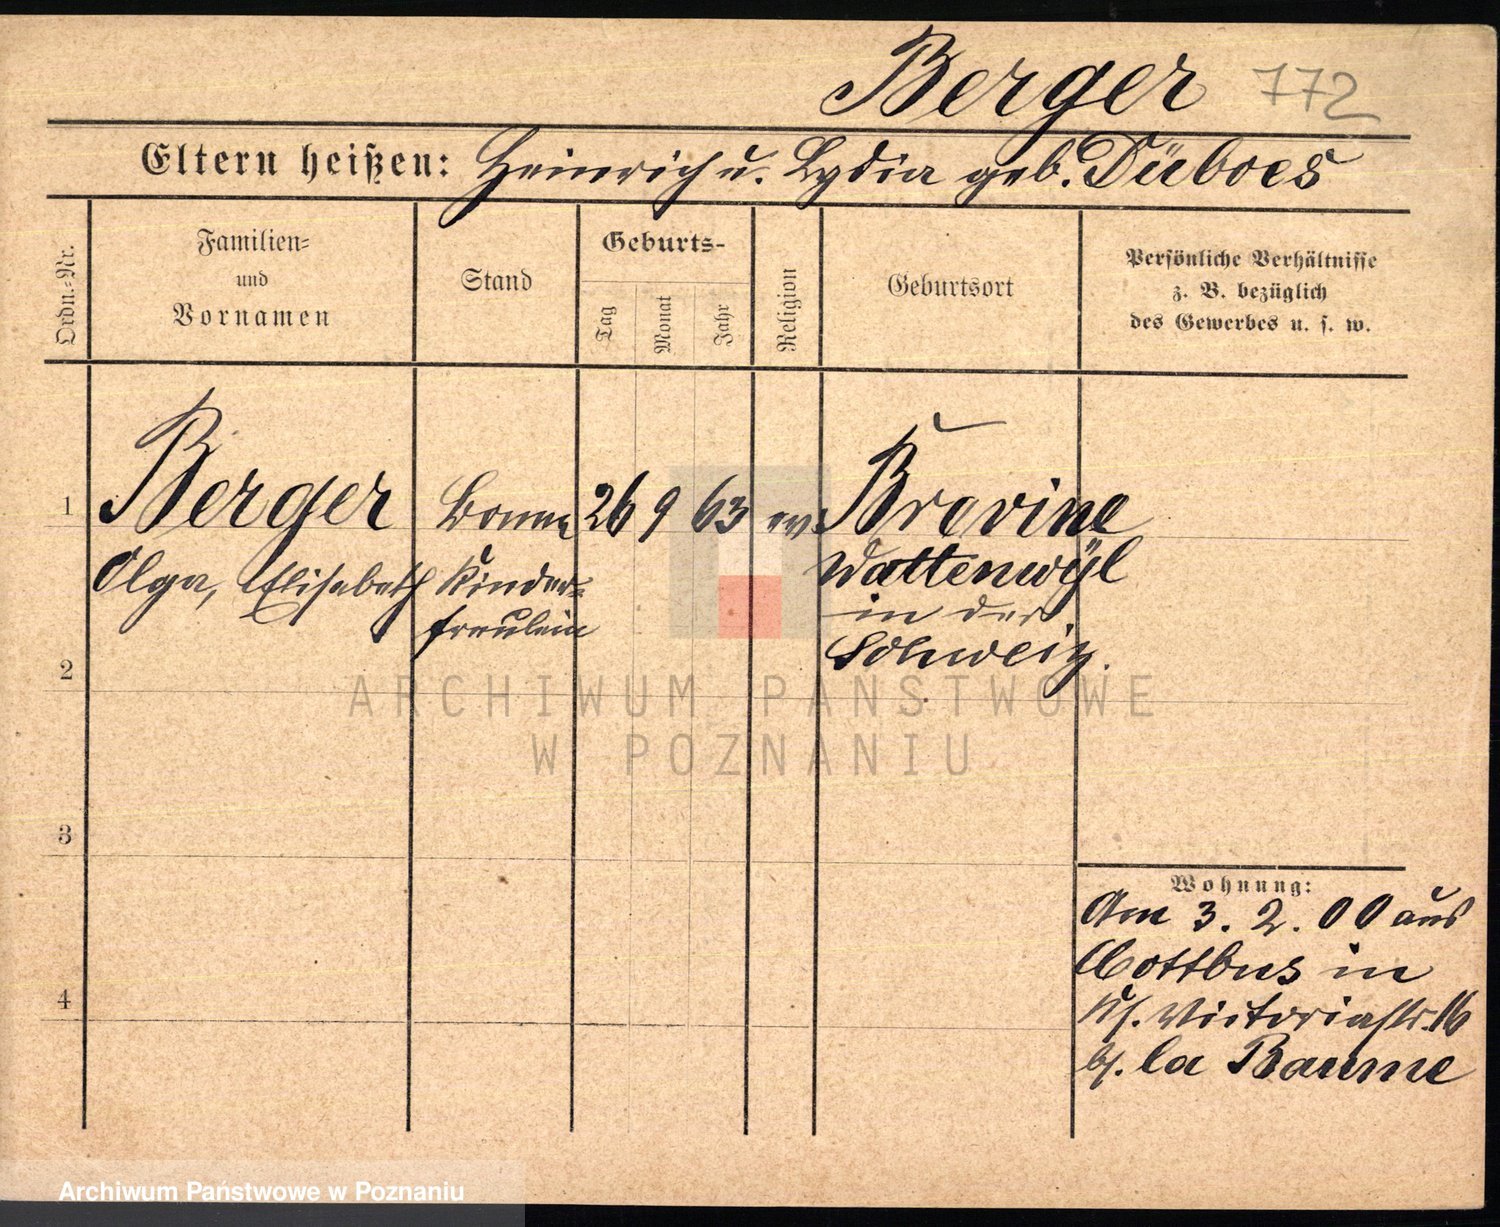 Berger 772
Eltern heißen: Heinrich u. Lydia geb. Düboes
Ordn.-Nr.
Familien-
und
Vornamen
Stand
Geburts-
Tag
Monat
Jahr
Religion
Geburtsort
Persönliche Verhältnisse
z. B. bezüglich
des Gewerbes u. s. w.
1 Berger Bonne 26 9 63 ev. Brevine
Olga, Elisabeth Kinder- Wattenwÿl
fraulein in der
Schweiz.
2
3
4
Wohnung:
Am 3. 2. 00 aus
Cottbus in
Victoriastr. 16
b/. la Baume
ARCHIWUM PAŃSTWOWE
W POZNANIU
Archiwum Państwowe w Poznaniu